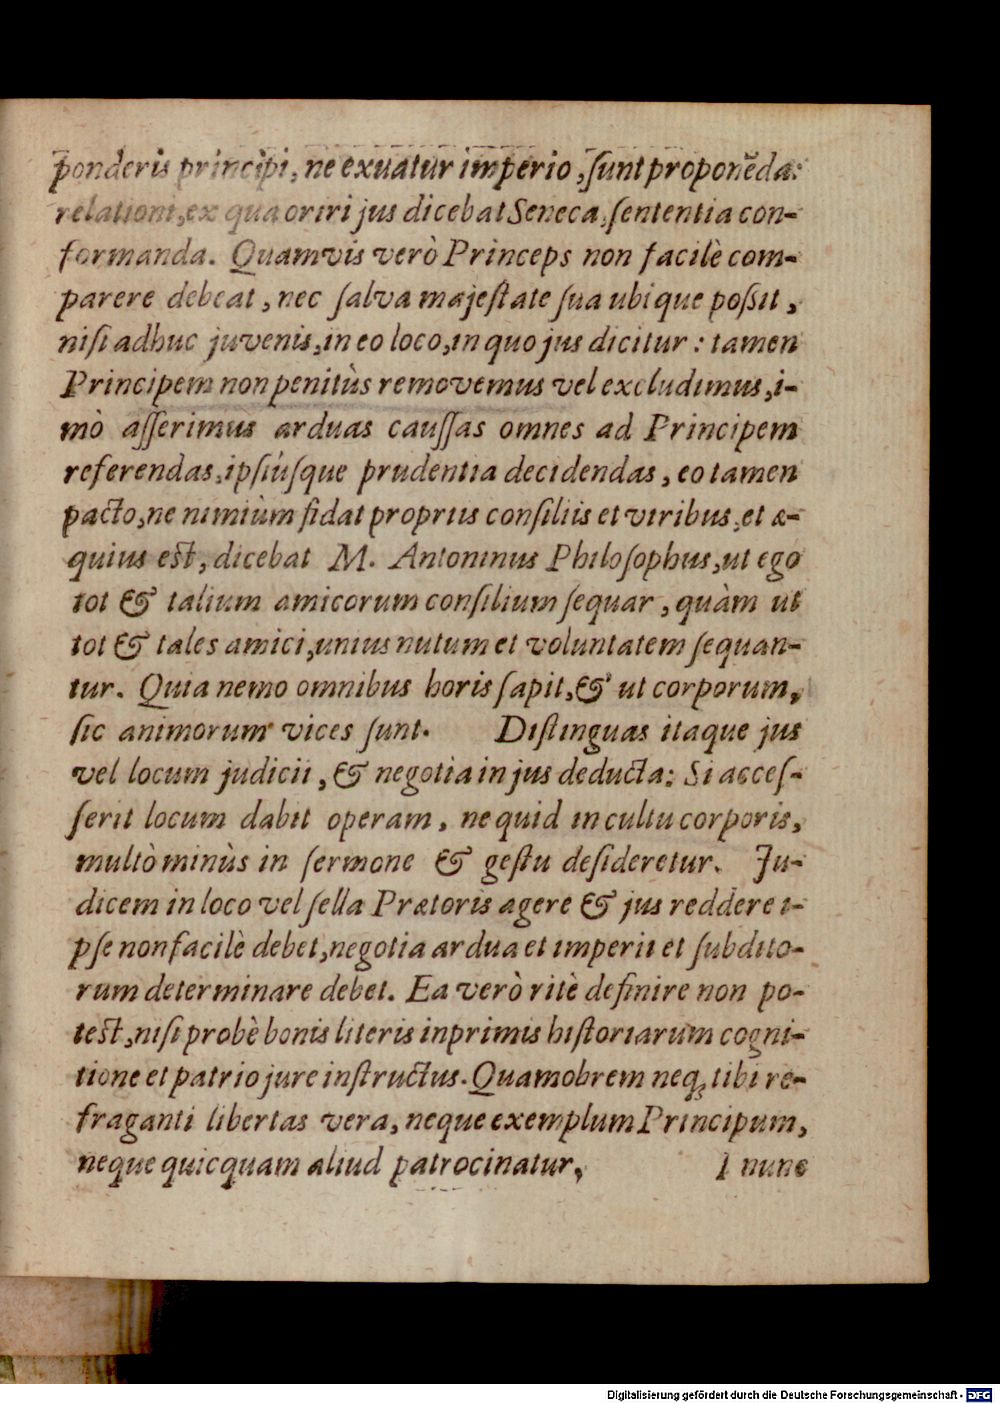 ponderis principi, ne exuatur imperio, ſunt proponẽda:
relationi, ex qua oriri jus dicebat Seneca, ſententia con-
formanda. Quamvis verò Princeps non facilè com-
parere debeat, nec ſalva majeſtate ſua ubique poſsit,
niſi adhuc juvenis, in eo loco, in quo jus dicitur: tamen
Principem non penitùs removemus vel excludimus, i-
mò aſſerimus arduas cauſſas omnes ad Principem
referendas, ipſiúſque prudentia decidendas, eo tamen
pacto, ne nimiùm fidat propriis conſiliis et viribus, et æ-
quius est, dicebat M. Antoninus Philoſophus, ut ego
tot & talium amicorum conſilium ſequar, quàm ut
tot & tales amici, unius nutum et voluntatem ſequan-
tur. Quia nemo omnibus horis ſapit, & ut corporum,
ſic animorum vices ſunt. Diſtinguas itaque jus
vel locum judicii, & negotia in jus deducta: Si acceſ-
ſerit locum dabit operam, ne quid in cultu corporis,
multò minùs in ſermone & geſtu deſideretur. Ju-
dicem in loco vel ſella Prætoris agere & jus reddere i-
pſe non facilè debet, negotia ardua et imperii et ſubdito-
rum determinare debet. Ea verò ritè definire non po-
test, niſi probè bonis literis inprimis hiſtoriarum cogni-
tione et patrio jure inſtructus. Quamobrem neq; tibi re-
fraganti libertas vera, neque exemplum Principum,
neque quicquam aliud patrocinatur, I nunc
Digitalisierung gefördert durch die Deutsche Forschungsgemeinschaft - DFG